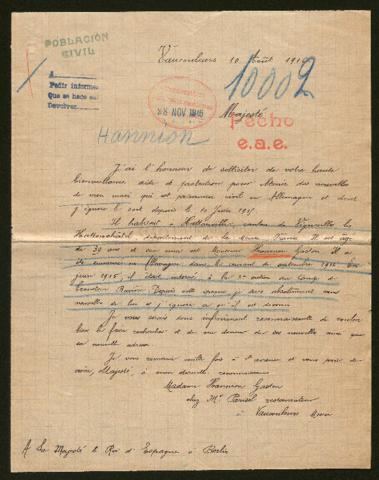 POBLACIÓN
CIVIL
Vaucouleurs 10 Août 191
10002
A
Pedir informes
Que se hade
Devolver
28 NOV 1915
Majesté
Pecho
e.a.e.
Hannion
J'ai l'honneur de solliciter de votre haute
bienveillance aide et protection pour obtenir des nouvelles
de mon mari qui est prisonnier civil en Allemagne et dont
j'ignore le sort depuis le 10 Juin 1915
Il habitait à Hattonville, canton de Vigneulles les
Hattonchâtel département de la Meuse France. Il est âgé
de 30 ans et se nomme Hannion Gaston Il a
été emmené en Allemagne dans le courant de septembre 1914. En
juin 1915, il était interné à la au Camp de
Bavière Depuis cette époque je suis absolument sans
nouvelle de lui et j'ignore ce qu'il est devenu
Je vous serais donc infiniment reconnaissante de vouloir
bien le faire rechercher et de me donner de ses nouvelles ainsi que
sa nouvelle adresse
Je vous remercie mille fois à l'avance et vous prie de
croire, Majesté, à mon éternelle reconnaissance
Madame Hannion Gaston
chez Mr restaurateur
à Vaucouleurs Meuse
A Sa Majesté le Roi d'Espagne à Berlin